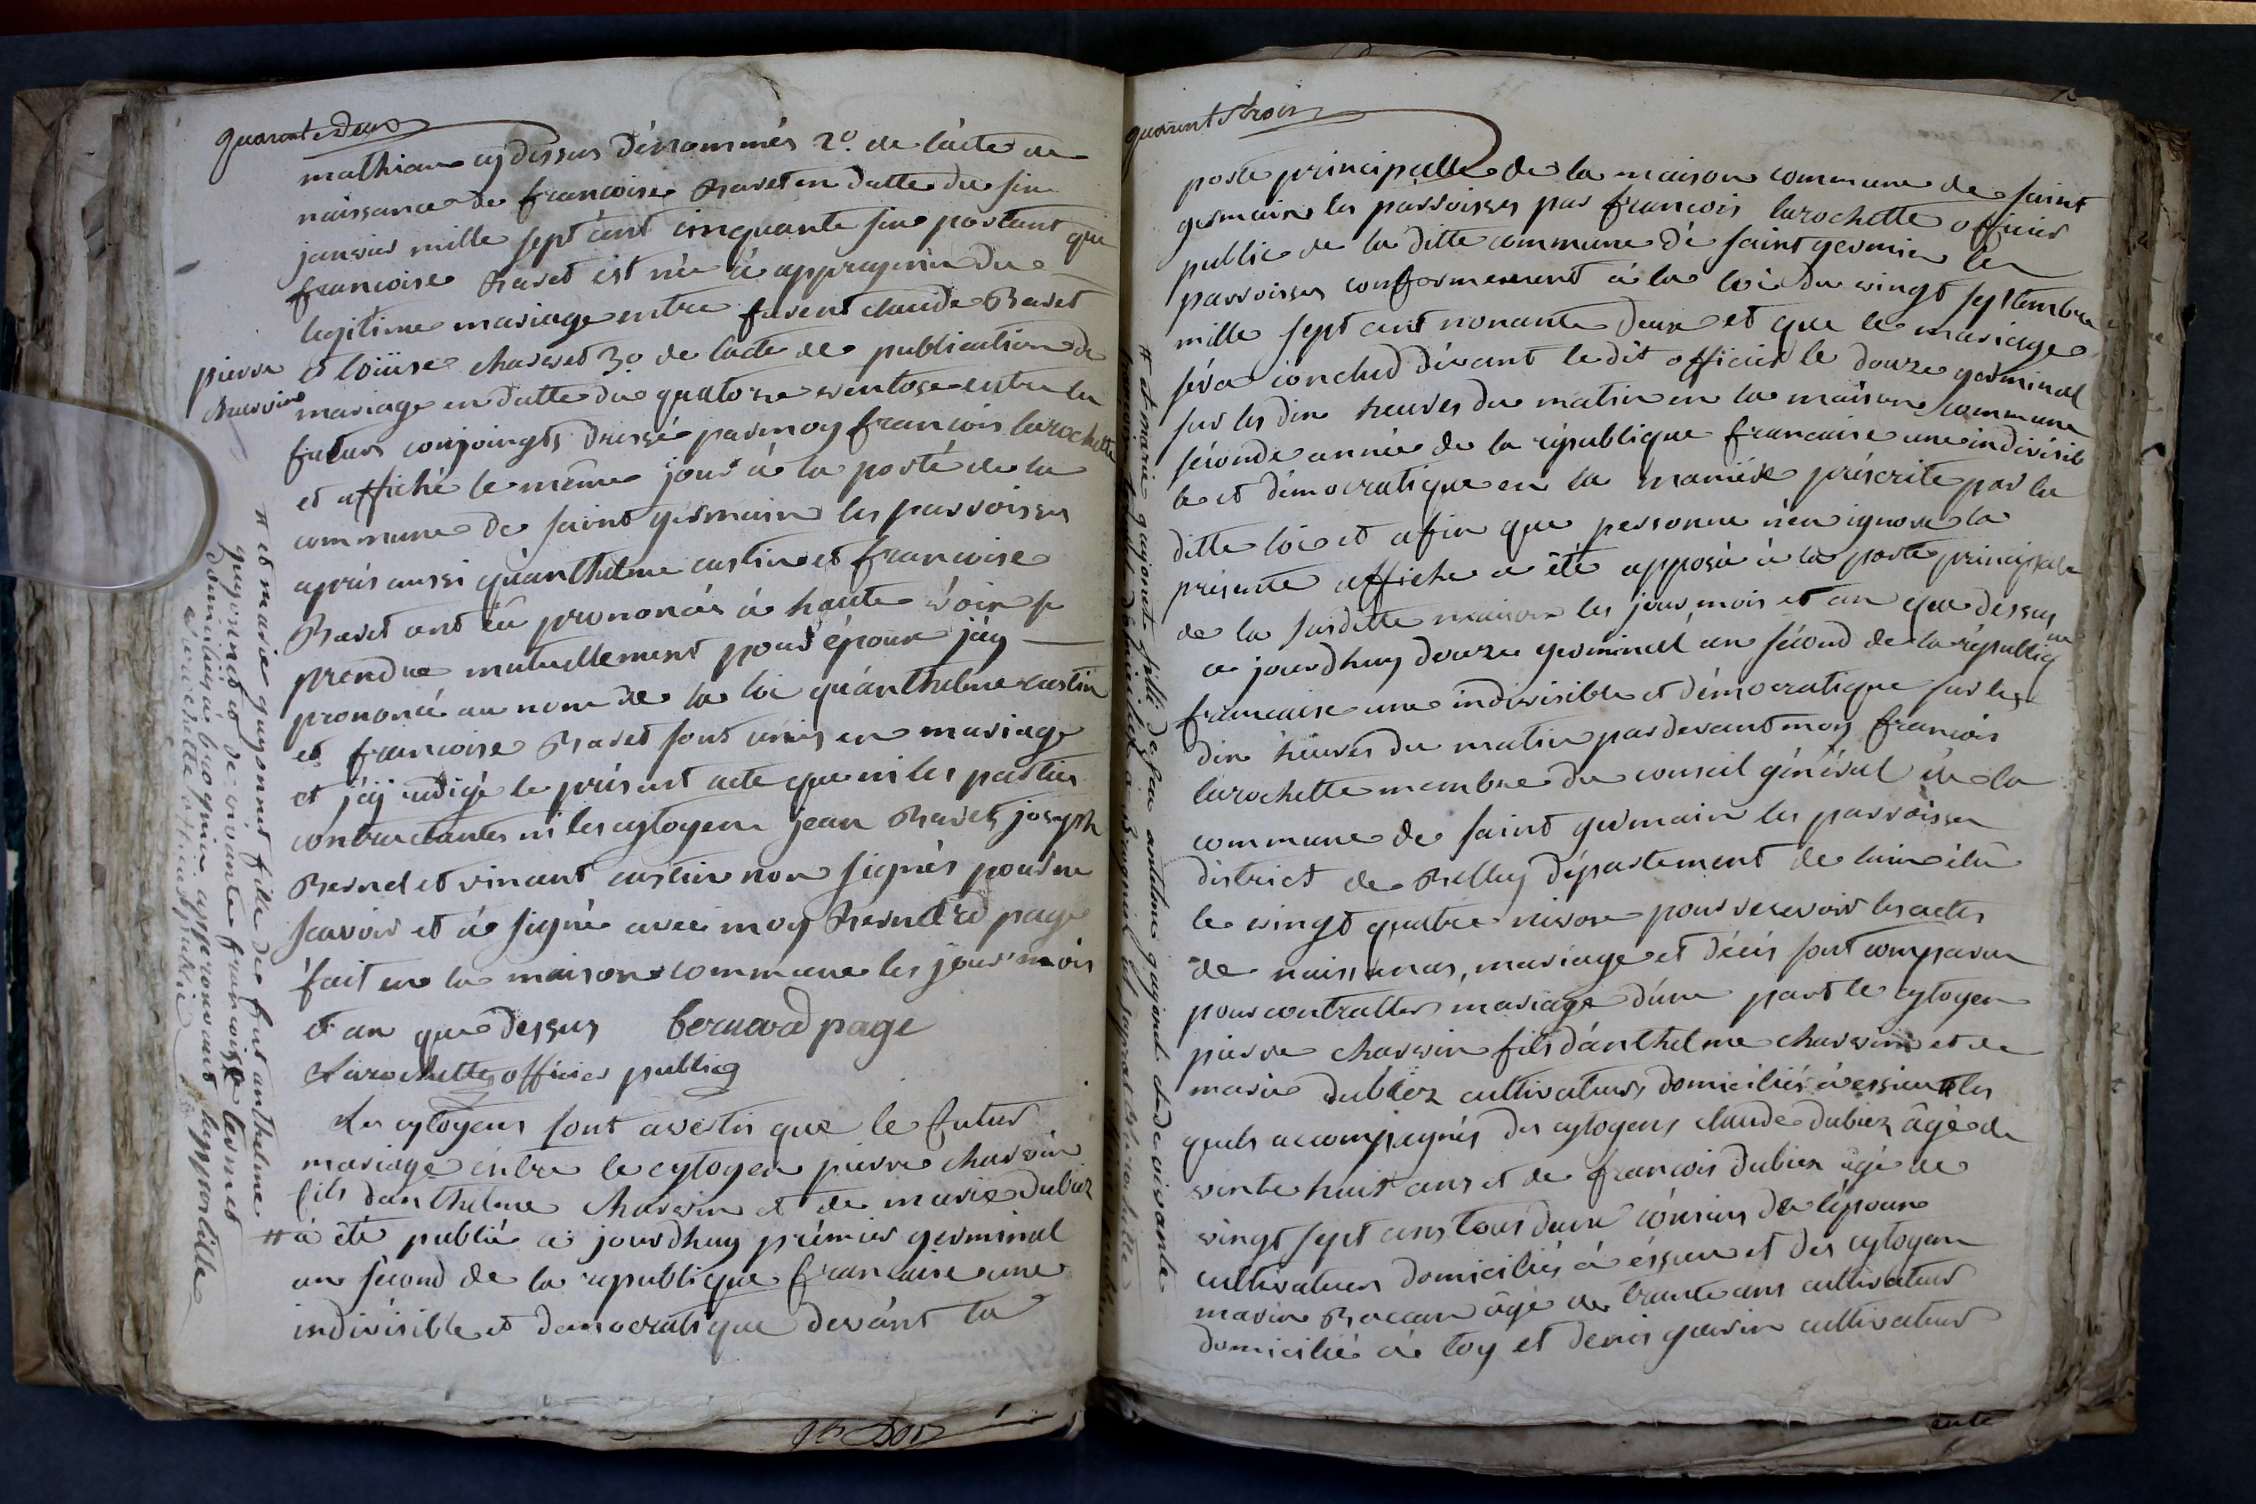 quarante deux
mathieu cydessus dénommés 2º. de lácte de
naissance de francoise Baret en datte du six
janvier mille sept cent cinquante six portant que
francoise Baret est née à appragnin du
legitime mariage entre furent claude Baret
et loüise charvet 3º. de lacte de publication de
mariage en datte du quatorze ventose entre les
futurs conjoingts dressé par moy francois larochette
et affiché le même jour à la porte de la
commune de saint germain les parroisses
aprés aussi qu'anthelme castin et francoise
Baret ont eû prononcés à haute voix se
prendre mutuellement pour époux j'ay
prononcé au nom de la loi qu'anthelme castin
et francoise Baret sont unis en mariage
et j'ay rédigé le présent acte que ni les parties
contractantes ni les cytoyens jean Baret, joseph
Bernel et vincent castin non signés pour ne
scavoir et à signé avec moy Bernard page
fait en la maison commune les jour mois
et an que dessus bernard page
Larochette officier public
pierre
charvin
Les cytoyens sont avertis que le futur
mariage entre le cytoyen pierre charvin
fils danthelme charvin et de marie dubiez
# à été publié ce jourdhuy prémier germinal
an sécond de la republique francaise une
indivisible et democratique devant la
# et marie guygonnet fille de fut anthelme
guygonnet et de vivante francoise termet
domiciliés à brognin approuvant lappostille
Larochette officier public
quarent trois
porte principalle de la maison commune de saint
germain les parroisses par francois larochette officier
public de la ditte commune de saint germain les
parroisses conformement à la loi du vingt septembre
mille sept cent nonante deux et que le mariage
séra conclud dévant le dit officier le douze germinal
sur les dix heures du matin en la maison commune
séconde année de la république francaise une indivisib
le et démocratique en la maniére préscrite par la
ditte loi et afin que personne n'en ignore la
présente affiche a été apposée à la porte principale
de la susditte maison les jour, mois et an que dessus
ce jourdhuy douze germinal an sécond de la républiq
ue
francaise une indivisible et démocratique sur les
dix heures du matin par devant moy francois
larochette membre du conseil général de la
commune de saint germain les parroisses
district de Belley département de lain élû
le vingt quatre nivose pour recevoir les actes
de naissances, mariage et décés sont comparu
pour contracter mariage d'une part le cytoyen
pierre charvin fils d'anthelme charvin et de
marie dubiez cultivateurs domiciliés à essieu # les
quels accompagnés des cytoyens claude dubiez âgé de
trente huit ans et de francois dubiez âgé de
vingt sept ans tous deux cousins de l'époux
cultivateurs domiciliés à éssieu et des cytoyen
marin Baccan âgé de trante ans cultivateur
domicilié à loy et denis gavin cultivateur
# et marie guygonnet fille de feu antelme guygonet et de vivante